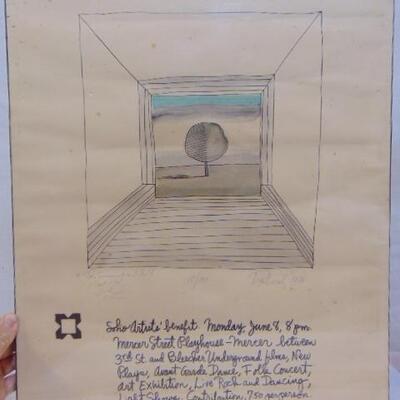 Soho Artists' benefit. Monday, June 8, 8 pm.
Mercer Street Playhouse - Mercer between
3rd St. and Bleecker. Underground films, New
Plays, Avant Garde Dance, Folk Concert,
Art Exhibition, Live Rock and Dancing,
Light Shows. Contribution, 7.50 per person.